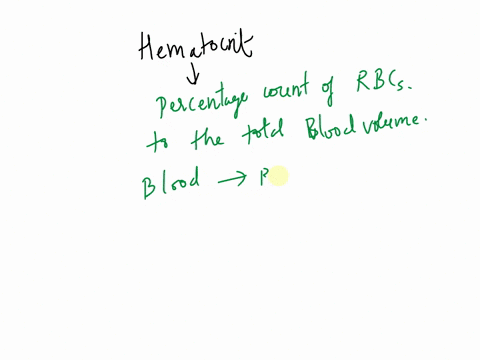 Hematocrit
↓
Percentage count of RBCs.
to the total Blood volume.
Blood → P